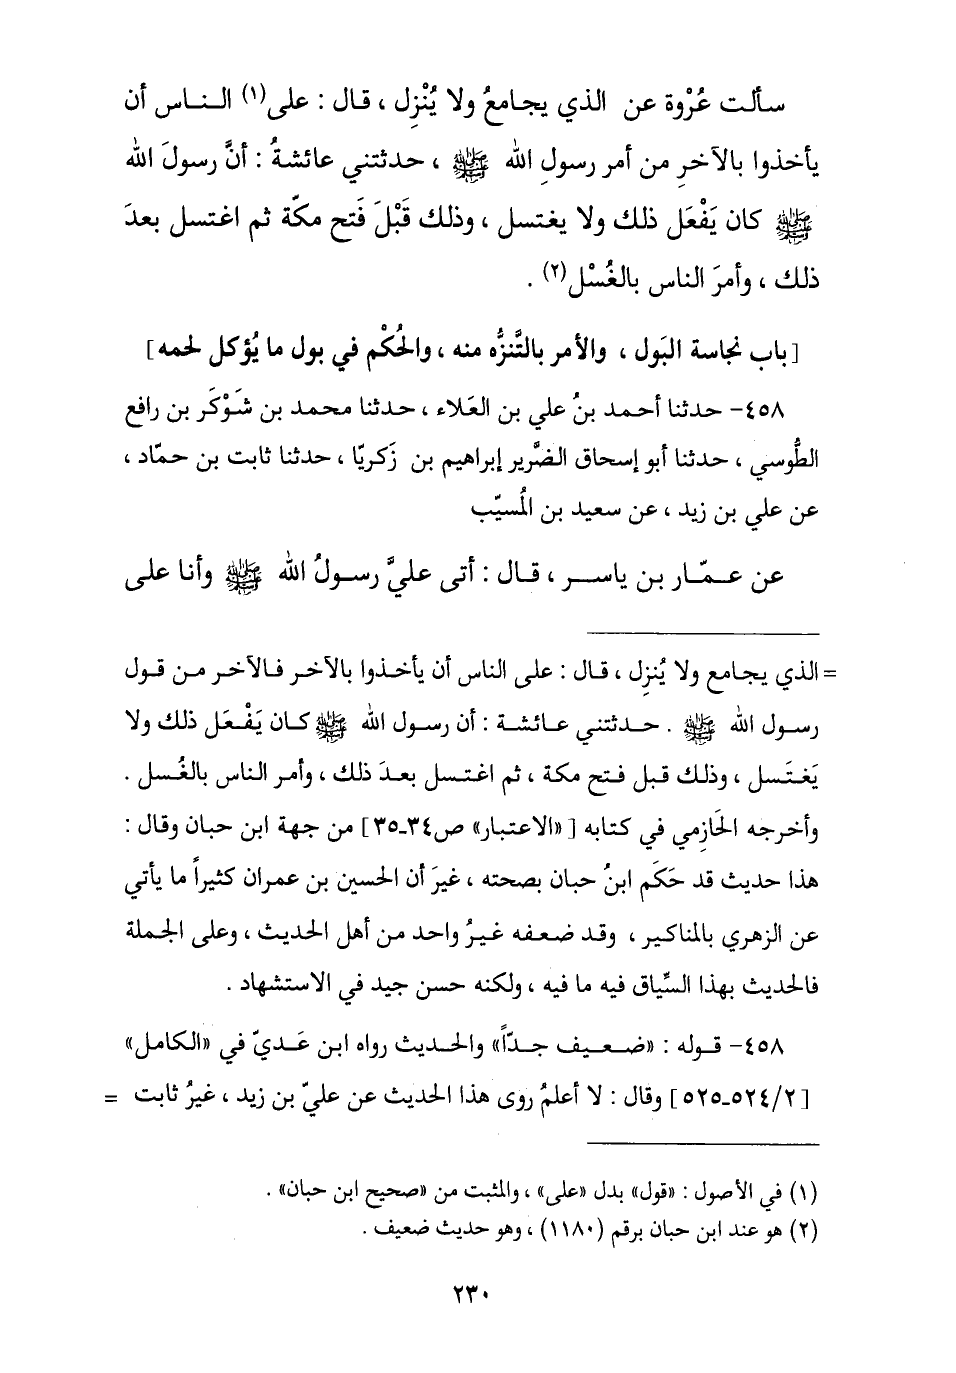 سألت عُرْوة عن الذي يجامعُ ولا يُنْزِل ، قال : على(١) النـاس أن
يأخذوا بالآخرِ من أمر رسولِ الله ﷺ ، حدثتني عائشةُ : أنَّ رسولَ الله
ﷺ كان يَفْعَل ذلك ولا يغتسل ، وذلك قَبْلَ فَتح مكّة ثم اغتسل بعدَ
ذلك ، وأمرَ الناس بالغُسْل(٢) .
[باب نجاسة البَول ، والأمر بالتَّنزُّه منه ، والحُكْم في بول ما يُؤكل لحمه]
٤٥٨- حدثنا أحمد بنُ علي بن العَلاء ، حدثنا محمد بن شَوْكَر بن رافع
الطُّوسي ، حدثنا أبو إسحاق الضَّرير إبراهيم بن زَكريّا ، حدثنا ثابت بن حمّاد ،
عن علي بن زيد ، عن سعيد بن المُسيّب
عن عـمّـار بن ياسـر ، قـال : أتى عليَّ رسـولُ الله ﷺ وأنا على
= الذي يـجـامع ولا يُنزِل ، قـال : على الناس أن يأخـذوا بالآخر فـالآخر مـن قول
رسـول الله ﷺ . حـدثتني عـائشـة : أن رسول الله ﷺ كـان يَفْـعَل ذلك ولا
يَغتَسل ، وذلـك قبل فـتح مكة ، ثم اغتـسل بعدَ ذلك ، وأمر الناس بالغُسل .
وأخرجه الحَازِمي في كتابه [«الاعتبار» ص٣٤-٣٥] من جهة ابن حبان وقال :
هذا حديث قد حَكَم ابنُ حبان بصحته ، غيرَ أن الحسين بن عمران كثيراً ما يأتي
عن الزهري بالمناكير ، وقـد ضعفه غيرُ واحد مـن أهل الحديث ، وعلى الجملة
فالحديث بهذا السِّياق فيه ما فيه ، ولكنه حسن جيد في الاستشهاد .
٤٥٨- قـوله : «ضـعـيف جـدّاً» والحـديث رواه ابن عَـديّ في «الكامل»
[٥٢٤/٢-٥٢٥] وقال : لا أعلمُ روى هذا الحديث عن عليّ بن زيد ، غيرُ ثابت =
(١) في الأصول : «قول» بدل «على» ، والمثبت من «صحيح ابن حبان» .
(٢) هو عند ابن حبان برقم (١١٨٠) ، وهو حديث ضعيف .
٢٣٠